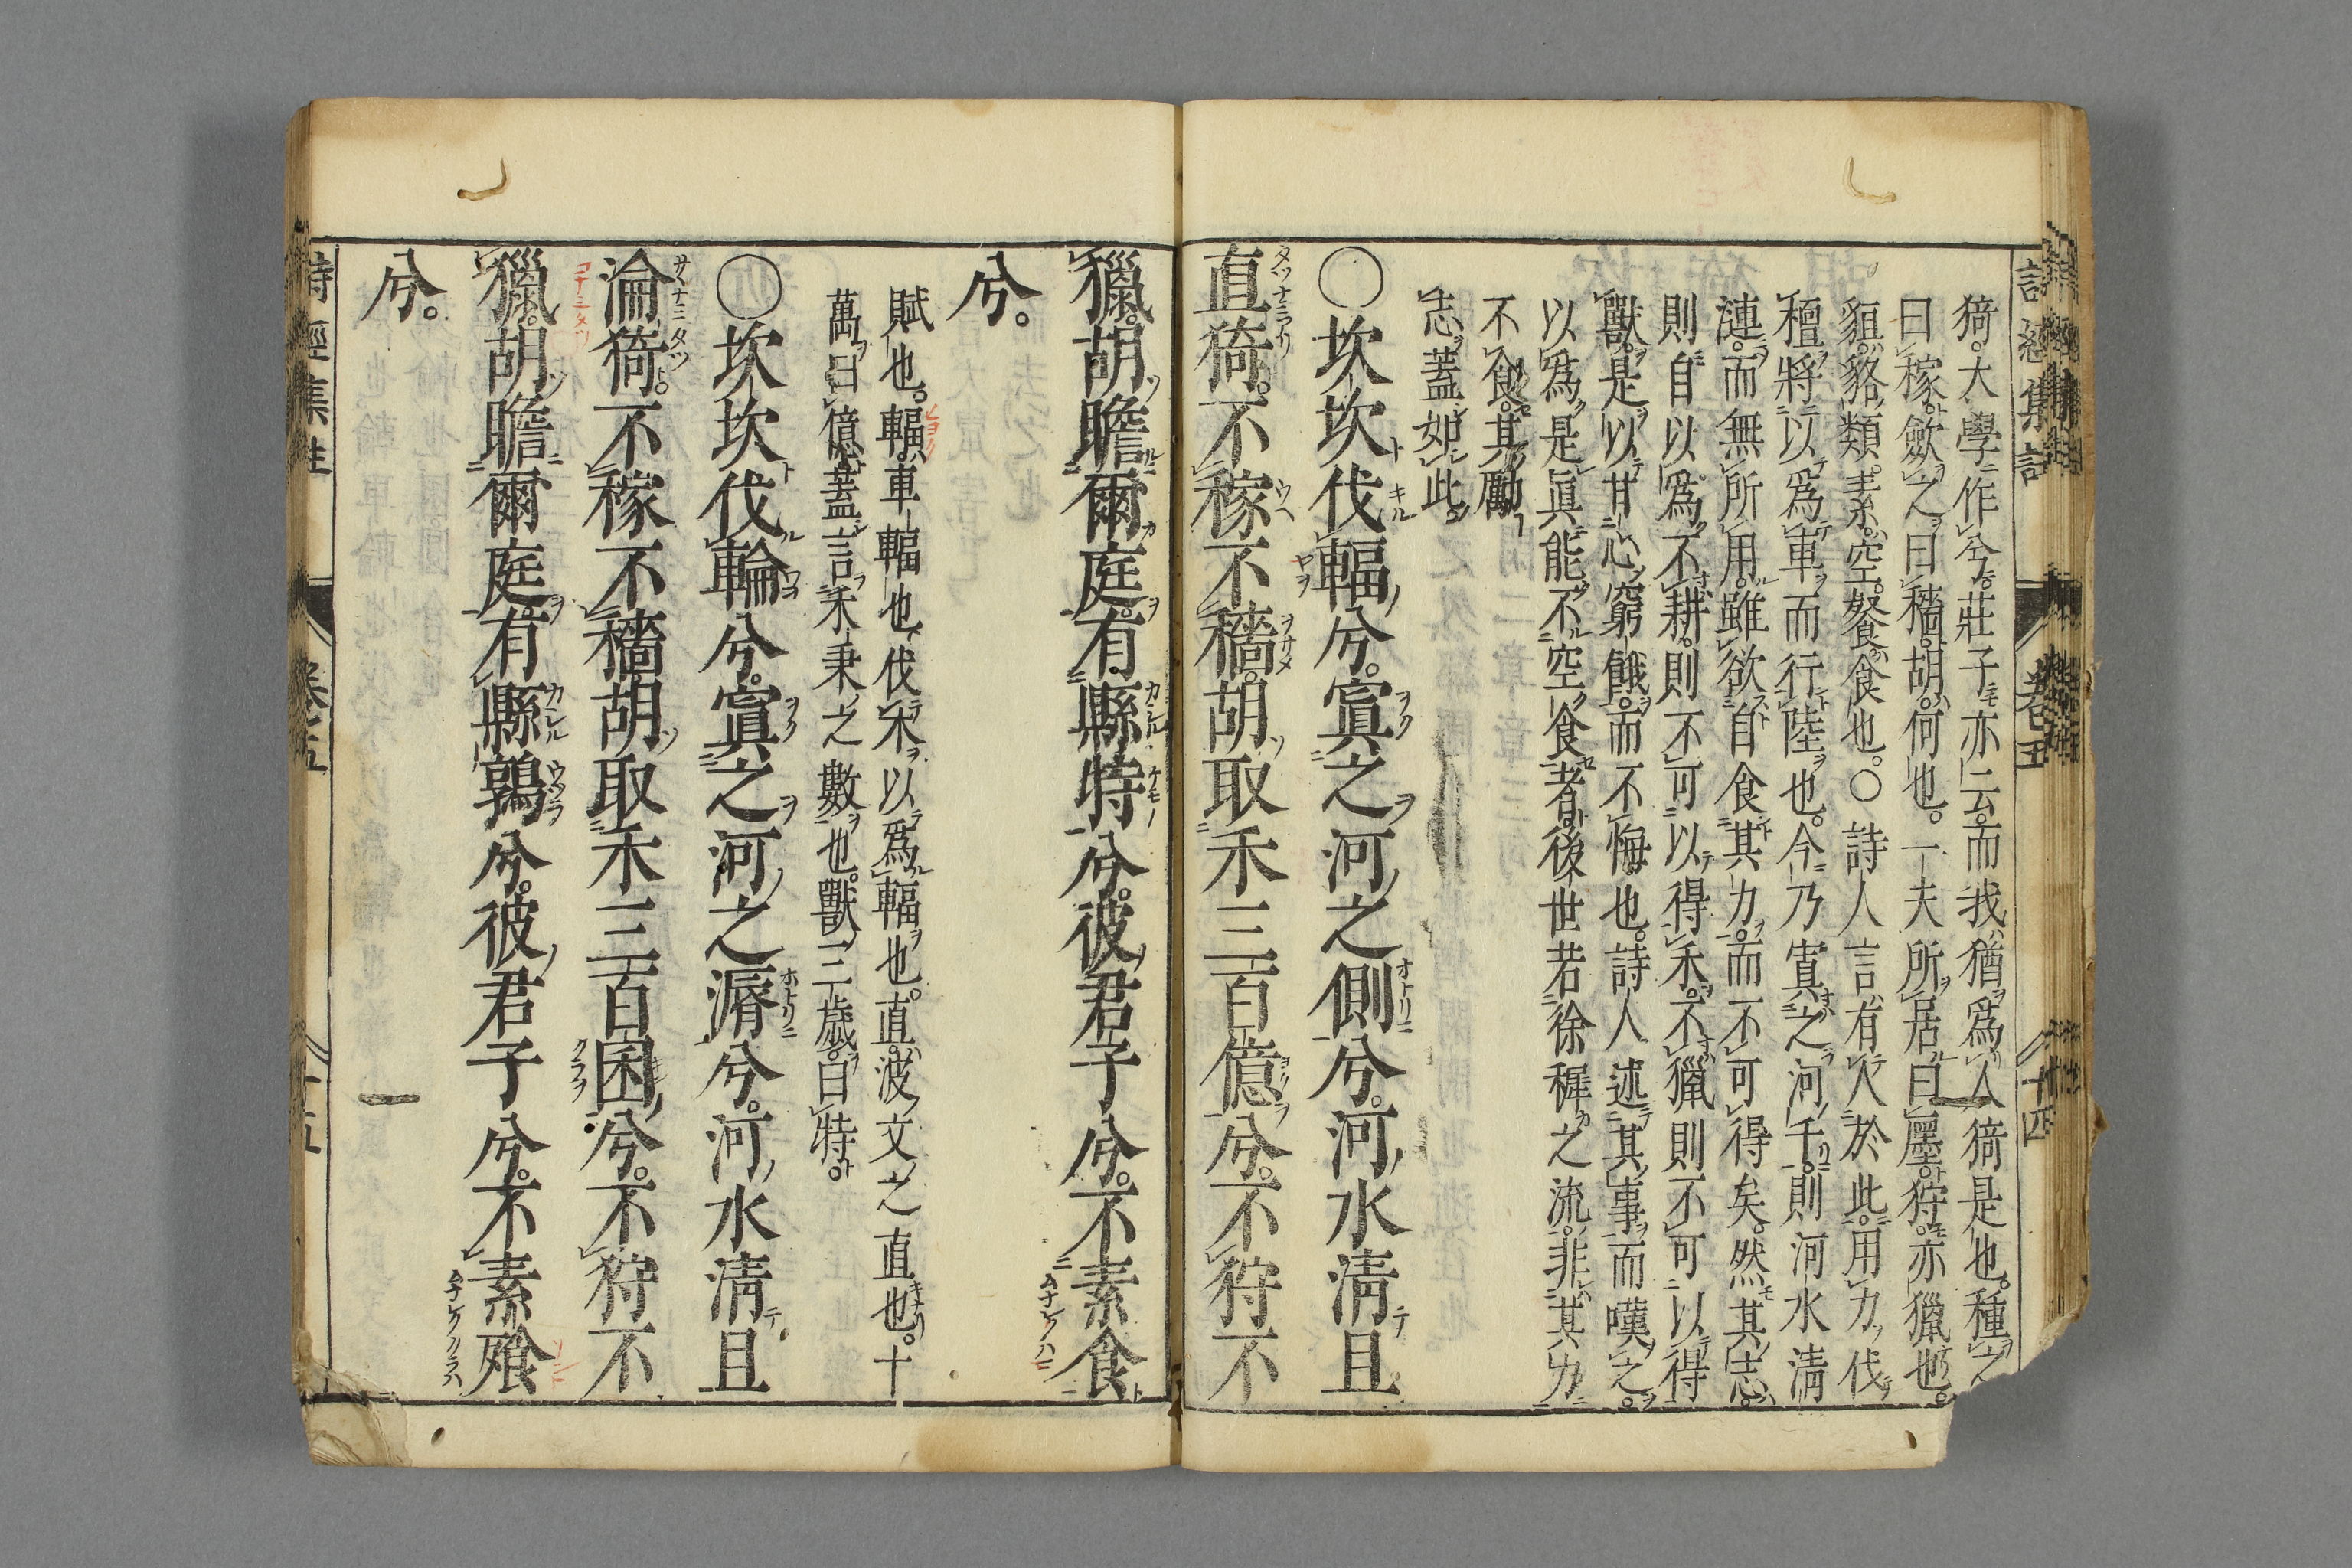 猗。大學作兮。莊子亦云。而我猶爲人猗是也。種之
曰稼。斂之曰穡。胡。何也。一夫所居曰廛。狩。亦獵也。
貆。貉類。素。空。餐。食也。○詩人言有人於此。用力伐
檀。將以爲車而行陸也。今乃寘之河干。則河水清
漣。而無所用。雖欲自食其力。而不可得矣。然其志。
則自以爲不耕。則不可以得禾。不獵則不可以得
獸。是以甘心窮餓。而不悔也。詩人述其事而嘆之。
以爲是眞能不空食者。後世若徐穉之流。非其力
不食。其勵
志蓋如此。
○坎坎伐輻兮。寘之河之側兮。河水清且
直猗。不稼不穡。胡取禾三百億兮。不狩不
獵。胡瞻爾庭。有縣特兮。彼君子兮。不素食
兮。
賦也。輻。車輻也。伐木以爲輻也。直。波文之直也。十
萬曰億。蓋言禾秉之數也。獸三歲曰特。
○坎坎伐輪兮。寘之河之漘兮。河水清且
淪猗。不稼不穡。胡取禾三百囷兮。不狩不
獵。胡瞻爾庭。有縣鶉兮。彼君子兮。不素飱
兮。
詩經集註
卷之五
十五